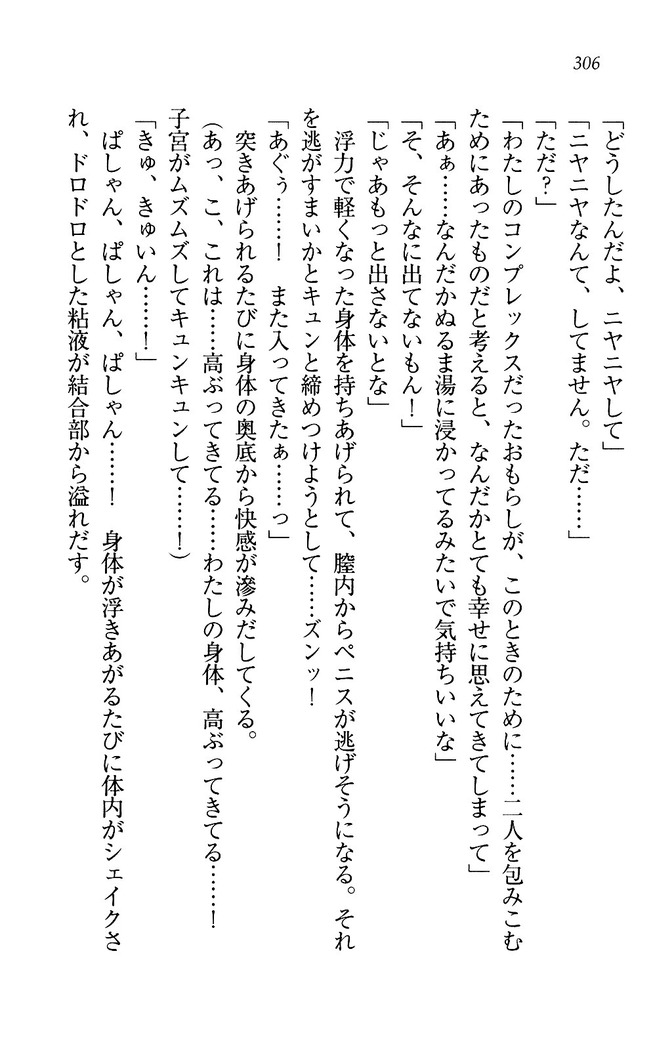 306
「どうしたんだよ、ニヤニヤして」
「ニヤニヤなんて、してません。ただ……」
「ただ？」
「わたしのコンプレックスだったおもらしが、このときのために……二人を包みこむ
ためにあったものだと考えると、なんだかとても幸せに思えてきてしまって」
「あぁ……なんだかぬるま湯に浸かってるみたいで気持ちいいな」
「そ、そんなに出てないもん！」
「じゃあもっと出さないとな」
　浮力で軽くなった身体を持ちあげられて、膣内からペニスが逃げそうになる。それ
を逃がすまいかとキュンと締めつけようとして……ズンッ！
「あぐぅ……！　また入ってきたぁ……っ」
　突きあげられるたびに身体の奥底から快感が滲みだしてくる。
（あっ、こ、これは……高ぶってきてる……わたしの身体、高ぶってきてる……！
子宮がムズムズしてキュンキュンして……！）
「きゅ、きゅいん……！」
　ぱしゃん、ぱしゃん、ぱしゃん……！　身体が浮きあがるたびに体内がシェイクさ
れ、ドロドロとした粘液が結合部から溢れだす。